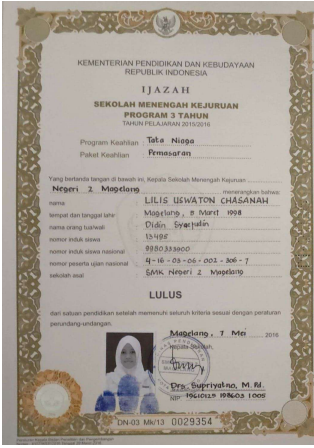 KEMENTERIAN PENDIDIKAN DAN KEBUDAYAAN
REPUBLIK INDONESIA
IJAZAH
SEKOLAH MENENGAH KEJURUAN
PROGRAM 3 TAHUN
TAHUN PELAJARAN 2015/2016
Program Keahlian : Tata Niaga
Paket Keahlian : Pemasaran
Yang bertanda tangan di bawah ini, Kepala Sekolah Menengah Kejuruan
Negeri 2 Magelang menerangkan bahwa:
nama : LILIS USWATON CHASANAH
tempat dan tanggal lahir : Magelang, 8 Maret 1998
nama orang tua/wali : Didin Syaepudin
nomor induk siswa : 13495
nomor induk siswa nasional : 9980333900
nomor peserta ujian nasional : 4-16-03-06-002-306-7
sekolah asal : SMK Negeri 2 Magelang
LULUS
dari satuan pendidikan setelah memenuhi seluruh kriteria sesuai dengan peraturan
perundang-undangan.
Magelang, 7 Mei 2016
Kepala Sekolah,
Drs. Supriyatno, M. Pd.
NIP
DN-03 Mk/13 0029354